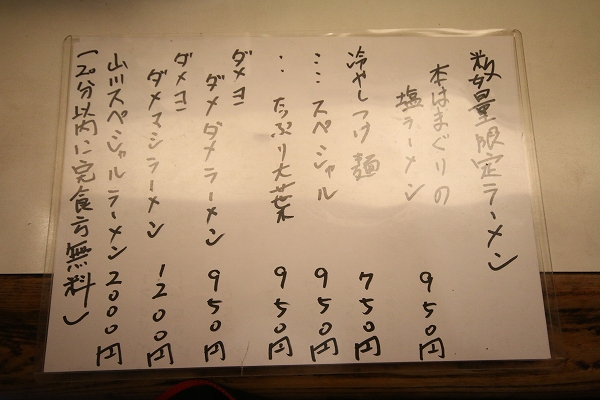 数量限定ラーメン
本はまぐりの
塩ラーメン 950円
冷やしつけ麺 750円
〃 スペシャル 950円
〃 たっぷり大葉 950円
ダメヨ!
ダメダメラーメン 950円
ダメヨ!
ダメマシラーメン 1200円
山川スペシャルラーメン 2000円
(20分以内に完食方無料)